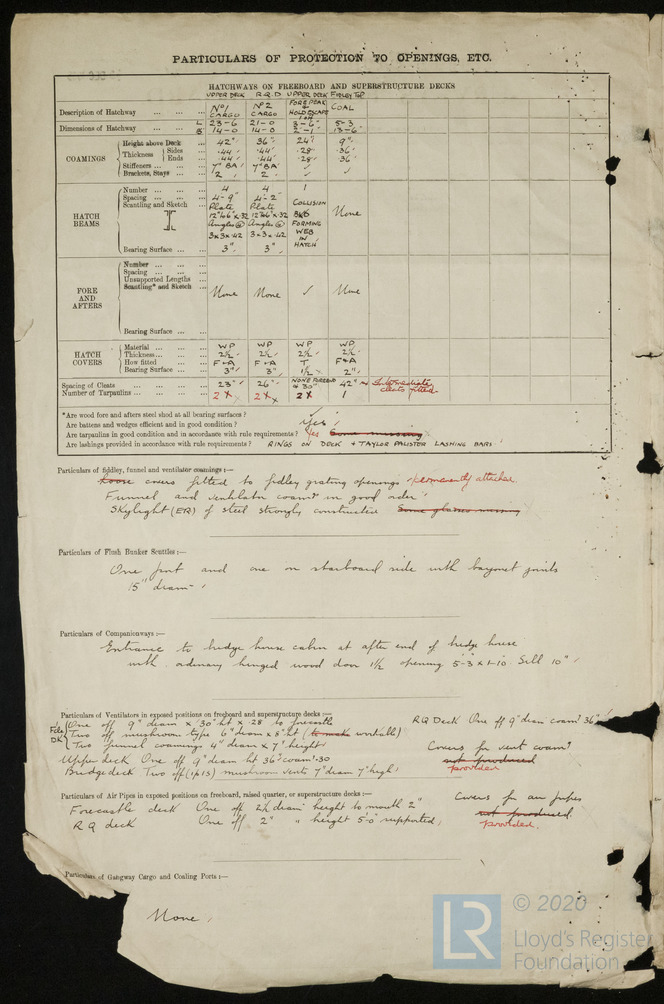 PARTICULARS OF PROTECTION TO OPENINGS, ETC.
HATCHWAYS ON FREEBOARD AND SUPERSTRUCTURE DECKS
UPPER DECK R.Q.D UPPER DECK FIDLEY TOP
Description of Hatchway ... ... ... No 1 CARGO No 2 CARGO FORE PEAK HOLD ESCAPE COAL
Dimensions of Hatchway ... ... L 23-6 21-0 3-6 5-3
B 14-0 14-0 2-1 13-6
COAMINGS
Height above Deck ... 42" 36" 24" 9"
Thickness Sides ... .44 .44 .28 .36
Ends ... .44 .44 .28 .36
Stiffeners ... ... ... 7" BA 7" BA ✓ ✓
Brackets, Stays ... ... 2 2 ✓ ✓
HATCH BEAMS
Number ... ... ... 4 4 1
Spacing ... ... ... 4-9" 4-2"
Scantling and Sketch ... Plate Plate COLLISION BHD FORMING WEB IN HATCH None
12"&6"x.32 12"&6"x.32
Angles @ Angles @
3x3x.42 3x3x.42
Bearing Surface ... ... 3" 3"
FORE AND AFTERS
Number ... ... ...
Spacing ... ... ...
Unsupported Lengths
Scantling* and Sketch ... None None ✓ None
Bearing Surface ... ...
HATCH COVERS
Material ... ... ... WP WP WP WP
Thickness ... ... ... 2½ 2½ 2½ 2½
How fitted ... ... F+A F+A T F+A
Bearing Surface ... 3" 3" 1½ 2"
Spacing of Cleats ... ... ... ... 23" 26" 42" Intermediate cleats fitted
Number of Tarpaulins ... ... ... 2 x 2 x 2 x 1
*Are wood fore and afters steel shod at all bearing surfaces? ✓
Are battens and wedges efficient and in good condition? Yes
Are tarpaulins in good condition and in accordance with rule requirements? Yes Some missing
Are lashings provided in accordance with rule requirements? RINGS ON DECK + TAYLOR PALISTER LASHING BARS
Particulars of fiddley, funnel and ventilator coamings:—
Loose covers fitted to fidley grating openings permanently attached
Funnel and ventilator coamgs in good order
Skylight (ER) of steel strongly constructed Some glasses missing
Particulars of Flush Bunker Scuttles:—
One port and one on starboard side with bayonet joints
15" diam
Particulars of Companionways:—
Entrance to bridge house cabin at after end of bridge house
with ordinary hinged wood door 1½ opening 5-3 x 1-10 Sill 10"
Particulars of Ventilators in exposed positions on freeboard and superstructure decks:—
Fcle Dk One off 9" diam x 30" ht x .28 to forecastle
Two off mushroom type 6" diam x 8" ht (to mak workable)
Two funnel coamings 4" diam x 7" height
Upper deck One off 9" diam ht 36" coam .30
Bridge deck Two off (1p1s) mushroom vents 7" diam 7" high
RQ Deck One off 9" diam coamg 36"
Covers for vent coamgs
not produced
provided
Particulars of Air Pipes in exposed positions on freeboard, raised quarter, or superstructure decks:—
Forecastle deck One off 2½ diam height to mouth 2"
R Q deck One off 2" " height 5'-0" supported
Covers for air pipes
not produced
provided.
Particulars of Gangway Cargo and Coaling Ports:—
None
LR
© 2020
Lloyd's Register
Foundation